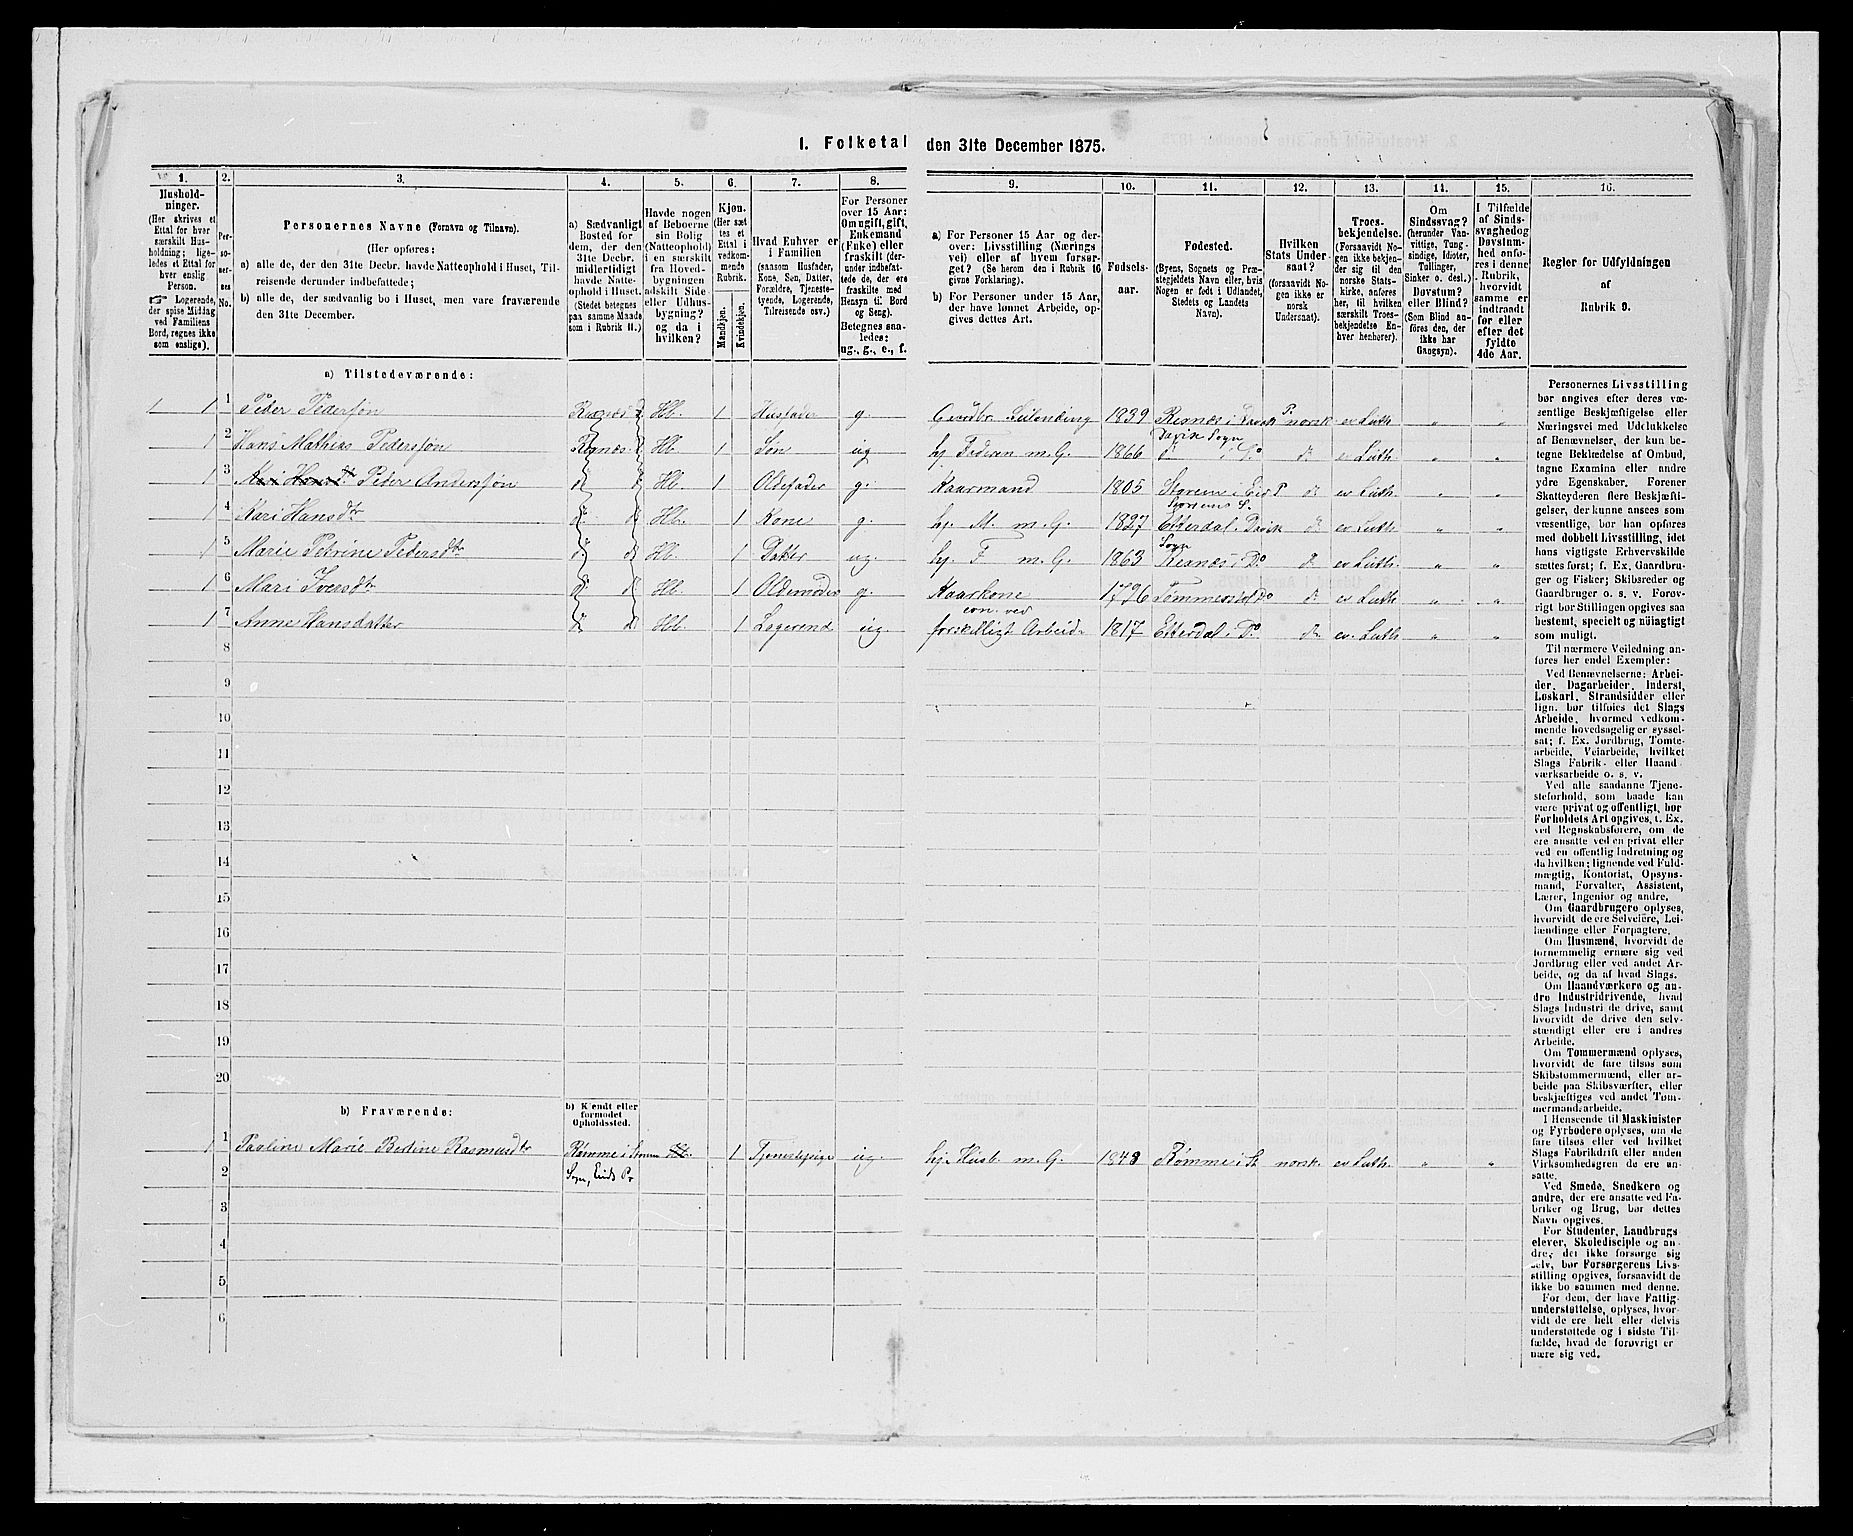 1. Folketal den 31te December 1875.
1. 2. 3. 4. 5. 6. 7. 8. 9. 10. 11. 12. 13. 14. 15. 16.
Hushold-
ninger.
(Her skrives et
Ettal for hver
særskilt Hus-
holdning; lige-
ledes et Ettal for
hver enslig
Person.
☞ Logerende,
der spise Middag
ved Familiens
Bord, regnes ikke
som enslige).
Per-
so-
ner-
nes
No.
Personernes Navne (Fornavn og Tilnavn).
(Her opføres:
a) alle de, der den 31te Decbr. havde Natteophold i Huset, Til-
reisende derunder indbefattede;
b) alle de, der sædvanlig bo i Huset, men vare fraværende
den 31te December.
a) Sædvanligt
Bosted for
dem, der den
31te Decbr.
midlertidigt
havde Natte-
ophold i Huset.
(Stedet betegnes
paa samme Maade
som i Rubrik 11.)
Havde nogen
af Beboerne
sin Bolig
(Natteophold)
i en særskilt
fra Hoved-
bygningen
adskilt Side-
eller Udhus-
bygning?
og da i
hvilken?
Kjøn.
(Her sæt-
tes et
Ettal i
vedkom-
mende
Rubrik.
Mandkjøn.
Kvindekjøn.
Hvad Enhver er
i Familien
(saasom Husfader,
Kone, Søn, Datter,
Forældre, Tjeneste-
tyende, Logerende,
Tilreisende osv.)
For Personer
over 15 Aar:
Om ugift, gift,
Enkemand
(Enke) eller
fraskilt (der-
under indbefat-
tede de, der ere
fraskilte med
Hensyn til Bord
og Seng).
Betegnes saa-
ledes:
ug., g., e., f.
a) For Personer 15 Aar og der-
over: Livsstilling (Nærings
vei) eller af hvem forsør-
get? (Se herom den i Rubrik 16
givne Forklaring).
b) For Personer under 15 Aar,
der have lønnet Arbeide, op-
gives dettes Art.
Fødsels-
aar.
Fødested.
(Byens, Sognets og Præ-
stegjeldets Navn eller, hvis
Nogen er født i Udlandet,
Stedets og Landets
Navn).
Hvilken
Stats Under-
saat?
(forsaavidt No-
gen ikke er
norsk
Undersaat).
Troes-
bekjendelse.
(Forsaavidt No-
gen ikke bekjen-
der sig til den
norske Stats-
kirke, anføres
her, til hvilken
særskilt Troes-
bekjendelse En-
hver henhører).
Om
Sindssvag?
(herunder Van-
vittige, Tung-
sindige, Idioter,
Tullinger,
Sinker o. desl.)
Døvstum?
eller Blind?
(Som Blind an-
føres den, der
ikke har
Gangsyn).
I Tilfælde
af Sinds-
svaghed og
Døvstum-
hed anfø-
res i denne
Rubrik,
hvorvidt
samme er
indtraadt
før eller
efter det
fyldte
4de Aar.
Regler for Udfyldningen
af
Rubrik 9.
a) Tilstedeværende:
1 1 1 Peder Pedersøn Hb. 1 Husfader g. Gaardbr. Leilending 1839 norsk ev Luth " "
Davik Sogn
1 2 Hans Mathias Pedersøn Hb. 1 Søn ug hj. Federen m. G. 1866 do do do ev Luth " "
1 3 Peder Andersøn do do Hb. 1 Oldefader g. Kaarmand 1805 do ev Luth. " "
1 4 Kari Hansdtr do do Hb. 1 Kone g. hj. M. m. G. 1827 Etterdal, Davik do ev Luth " "
Sogn
1 5 Marie Petrine Pedersdtr do do Hb. 1 Datter ug. hj. F m. G. 1863 do ev Luth. " "
1 6 Mari Iversdtr do do Hb. 1 Oldemoder g. Kaarkone 1796 do ev Luth " "
ern. ved
1 7 Anne Hansdatter do do Hb. 1 Logerend ug. forskelligt Arbeide 1817 Etterdal i Do do ev. Luth " "
8
9
10
11
12
13
14
15
16
17
18
19
20
b) Fraværende:
b) Kjendt eller
formodet
Opholdssted.
1 1 Pauline Marie Bertine Rasmusdtr Rømme i 1 Tjenestepige ug. hj. Husb. m. G. 1848 Rømme i St norsk. ev Luth. " "
2 Sogn, Eids Pr
3
4
5
6
Personernes Livsstilling
bør angives efter deres væ-
sentlige Beskjæftigelse eller
Næringsvei med Udelukkelse
af Benævnelser, der kun be-
tegne Beklædelse af Ombud,
tagne Examina eller andre
ydre Egenskaber. Forener
Skatteyderen flere Beskjæfti-
gelser, der kunne ansees som
væsentlige, bør han opføres
med dobbelt Livsstilling, idet
hans vigtigste Erhvervskilde
sættes først; f. Ex. Gaardbru-
ger og Fisker; Skibsreder og
Gaardbruger o. s. v. Forøv-
rigt bør Stillingen opgives saa
bestemt, specielt og nøiagtigt
som muligt.
Til nærmere Veiledning an-
føres her endel Exempler:
Ved Benævnelserne: Arbei-
der, Dagarbeider, Inderst,
Løskarl, Strandsidder eller
lign. bør tilføies det Slags
Arbeide, hvormed vedkom-
mende hovedsagelig er syssel-
sat; f. Ex. Jordbrug, Tomte-
arbeide, Veiarbeide, hvilket
Slags Fabrik- eller Haand
værksarbeide o. s. v.
Ved alle saadanne Tjene-
steforhold, som baade kan
være privat og offentligt, bør
Forholdets Art opgives, t. Ex.
ved Regnskabsførere, om de
ere ansatte ved en privat eller
ved en offentlig Indretning og
da hvilken; lignende ved Fuld-
mægtig, Kontorist, Opsyns-
mand, Forvalter, Assistent,
Lærer, Ingeniør og andre.
Om Gaardbrugere oplyses,
hvorvidt de ere Selveiere, Lei-
lændinge eller Forpagtere.
Om Husmænd, hvorvidt de
fornemmelig ernære sig ved
Jordbrug eller ved andet Ar-
beide, og da af hvad Slags.
Om Haandværkere og an-
dre Industridrivende, hvad
Slags Industri de drive, samt
hvorvidt de drive den selv-
stændigt eller ere i andres
Arbeide.
Om Tømmermænd oplyses,
hvorvidt de fare tilsøs som
Skibstømmermænd, eller ar-
beide paa Skibsværfter, eller
beskjæftiges ved andet Tøm-
mermandsarbeide.
I Henseende til Maskinister
og Fyrbødere oplyses, om de
fare tilsøs eller ved hvilket
Slags Fabrikdrift eller anden
Virksomhedsgren de ere an-
satte.
Ved Smede, Snedkere og
andre, der ere ansatte ved Fa-
briker og Brug, bør dettes
Navn opgives.
For Studenter, Landbrugs
elever, Skoledisciple og an-
dre, der ikke forsørge sig
selv, bør Forsørgerens Livs-
stilling opgives, forsaavidt de
ikke bo sammen med denne.
For dem, der have Fattig-
understøttelse, oplyses, hvor-
vidt de ere helt eller delvis
understøttede og i sidste Til-
fælde, hvad de forøvrigt er
nære sig ved.